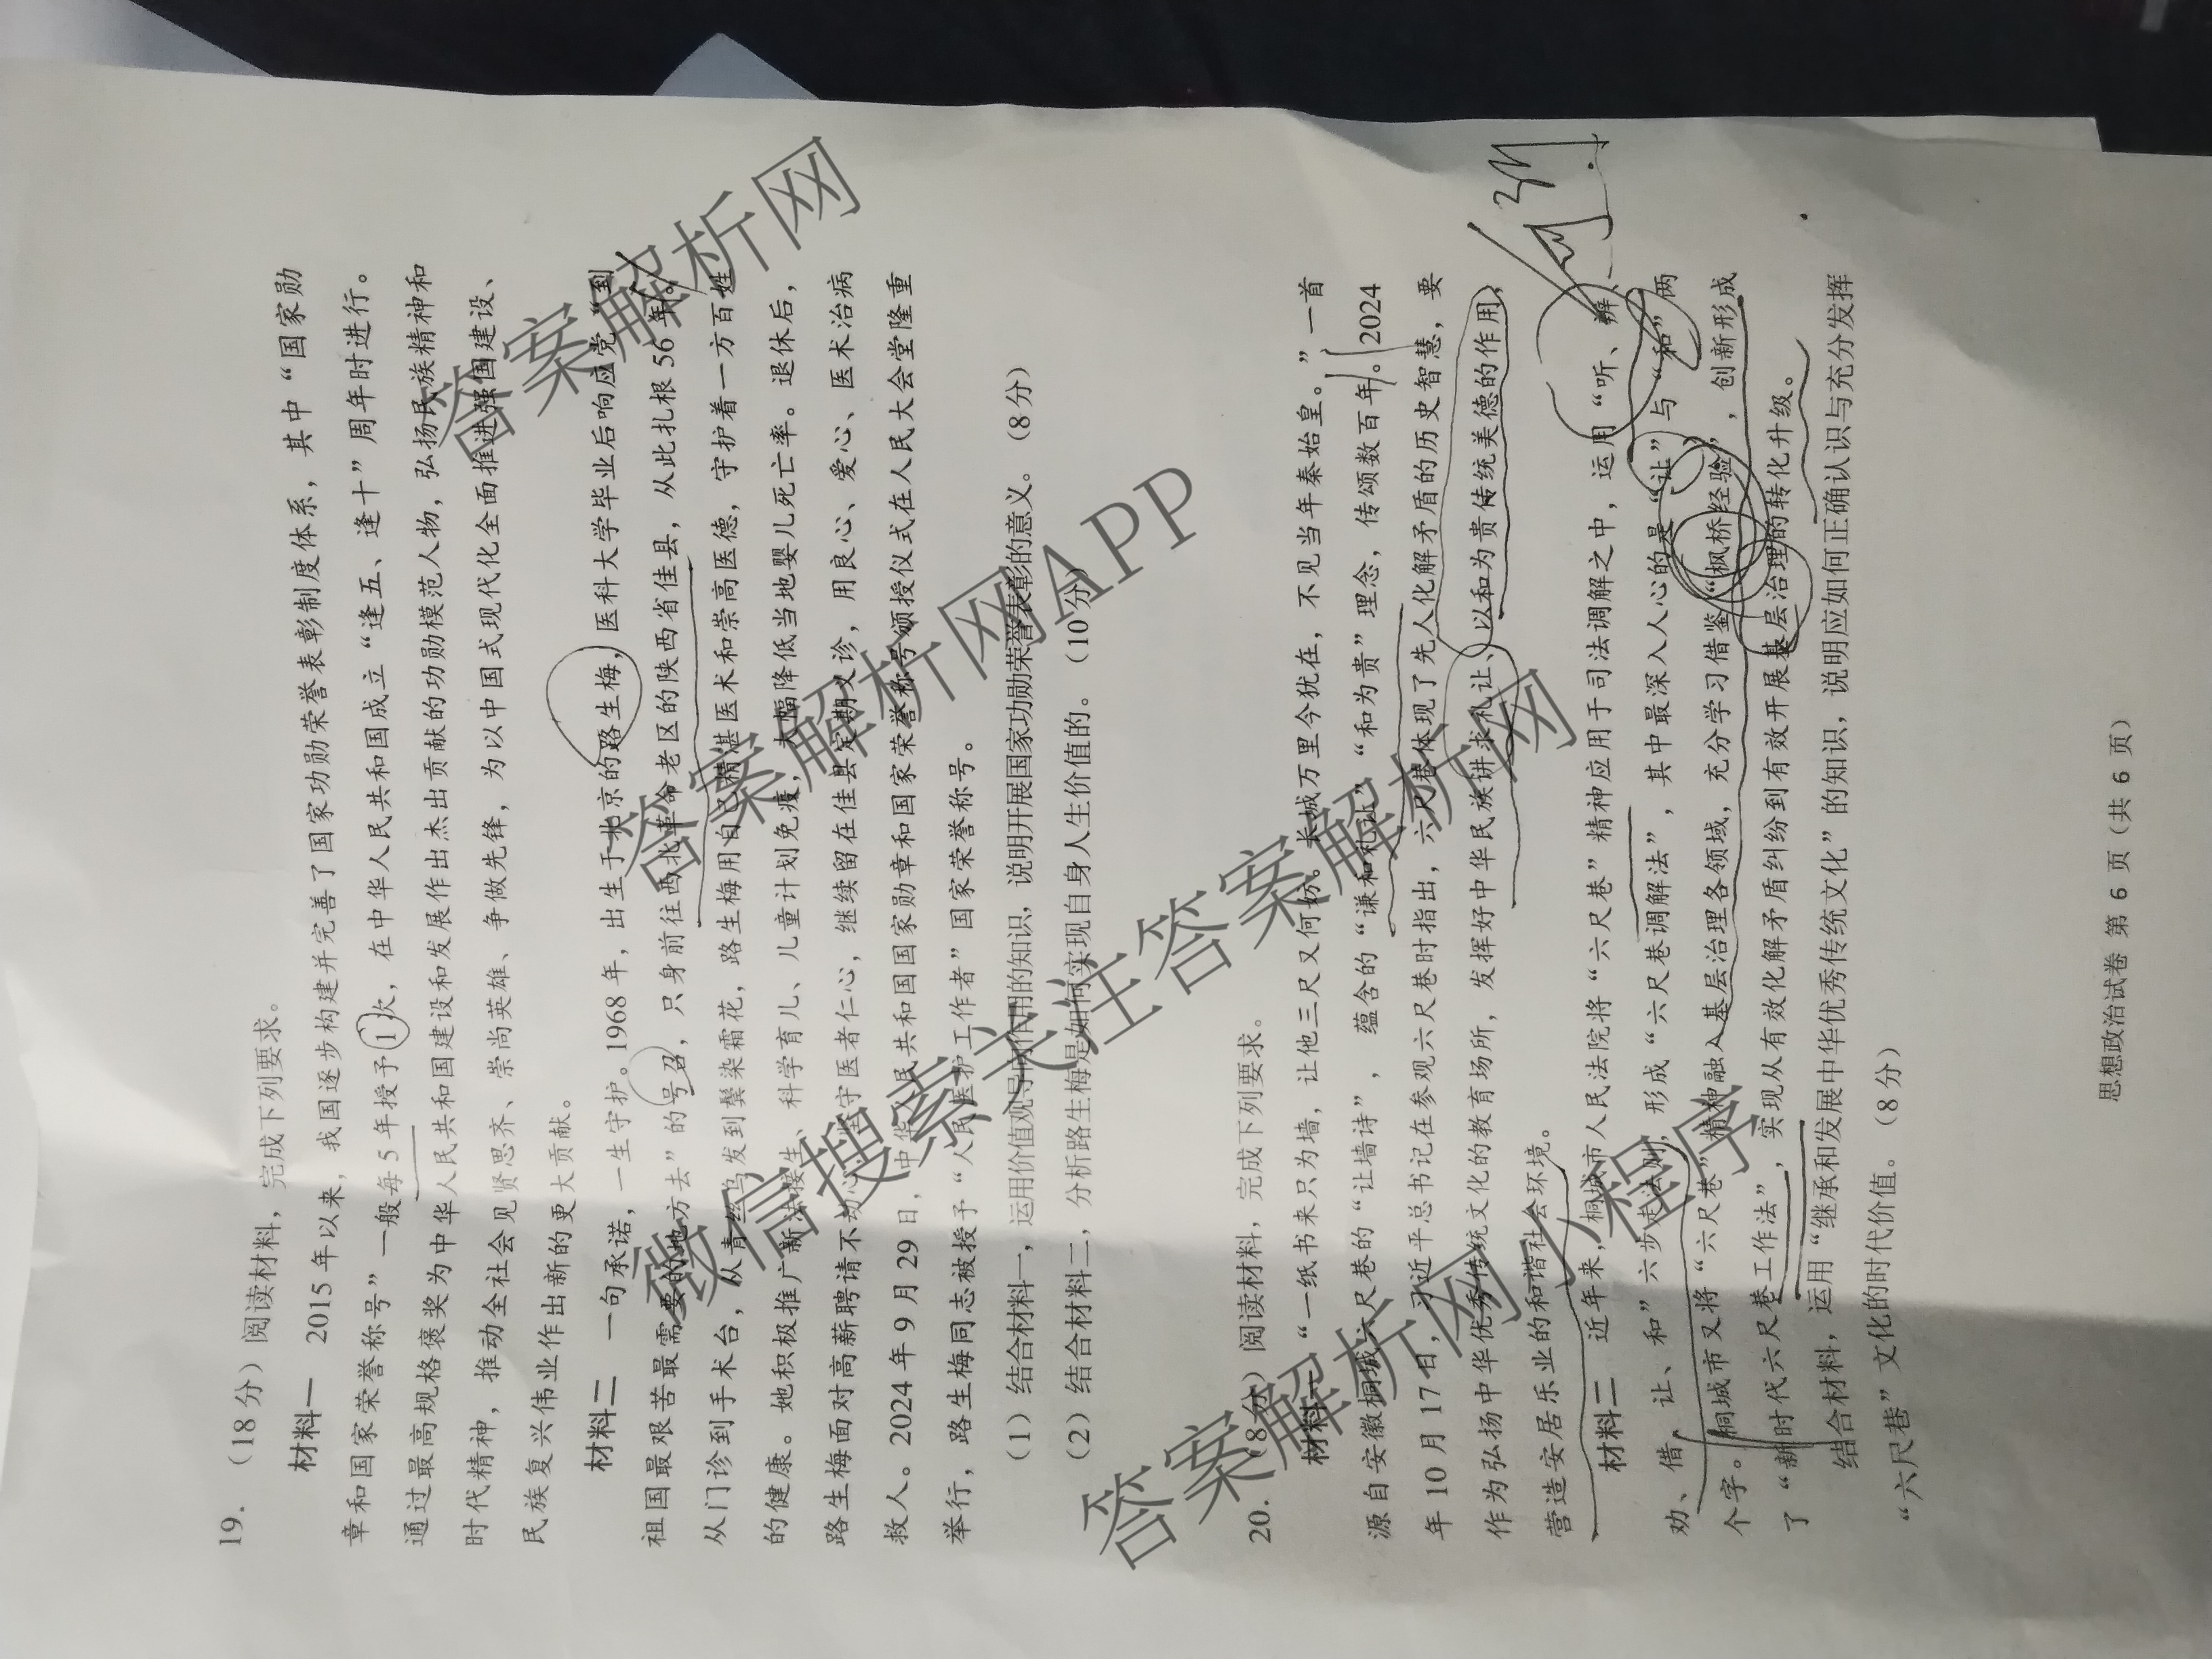 19. (18分) 阅读材料，完成下列要求。
材料一 2015年以来，我国逐步构建并完善了国家功勋荣誉表彰制度体系，其中“国家勋
章和国家荣誉称号”一般每5年授予1次，在中华人民共和国成立“逢五、逢十”周年时进行。
通过最高规格褒奖为中华人民共和国建设和发展作出杰出贡献的功勋模范人物，弘扬民族精神和
时代精神，推动全社会见贤思齐、崇尚英雄、争做先锋，为以中国式现代化全面推进强国建设、
民族复兴伟业作出新的更大贡献。
材料二 一句承诺，一生守护。1968年，出生于北京的路生梅，医科大学毕业后响应党“到
祖国最艰苦最需要的地方去”的号召，只身前往西北革命老区的陕西省佳县，从此扎根56年。
从门诊到手术台，从青丝乌发到鬓染霜花，路生梅用自己精湛医术和崇高医德，守护着一方百姓
的健康。她积极推广新法接生、科学育儿、儿童计划免疫，大幅降低当地婴儿死亡率。退休后，
路生梅面对高薪聘请不动心，坚守医者仁心，继续留在佳县定期义诊，用良心、爱心、医术治病
救人。2024年9月29日，中华人民共和国国家勋章和国家荣誉称号颁授仪式在人民大会堂隆重
举行，路生梅同志被授予“人民医护工作者”国家荣誉称号。
(1) 结合材料一，运用价值观导向作用的知识，说明开展国家功勋荣誉表彰的意义。(8分)
(2) 结合材料二，分析路生梅是如何实现自身人生价值的。(10分)
20. (8分) 阅读材料，完成下列要求。
材料一 “一纸书来只为墙，让他三尺又何妨。长城万里今犹在，不见当年秦始皇。”一首
源自安徽桐城六尺巷的“让墙诗”，蕴含的“谦和礼让”“和为贵”理念，传颂数百年。2024
年10月17日，习近平总书记在参观六尺巷时指出，六尺巷体现了先人化解矛盾的历史智慧，要
作为弘扬中华优秀传统文化的教育场所，发挥好中华民族讲求礼让、以和为贵传统美德的作用，
营造安居乐业的和谐社会环境。
材料二 近年来，桐城市人民法院将“六尺巷”精神应用于司法调解之中，运用“听、辨、
劝、借、让、和”六步走法则，形成“六尺巷调解法”，其中最深入人心的是“让”与“和”两
个字。桐城市又将“六尺巷”精神融入基层治理各领域，充分学习借鉴“枫桥经验”，创新形成
了“新时代六尺巷工作法”，实现从有效化解矛盾纠纷到有效开展基层治理的转化升级。
结合材料，运用“继承和发展中华优秀传统文化”的知识，说明应如何正确认识与充分发挥
“六尺巷”文化的时代价值。(8分)
思想政治试卷 第6页(共6页)
答案解析网
答案解析网APP
微信搜索关注答案解析网
答案解析网小程序